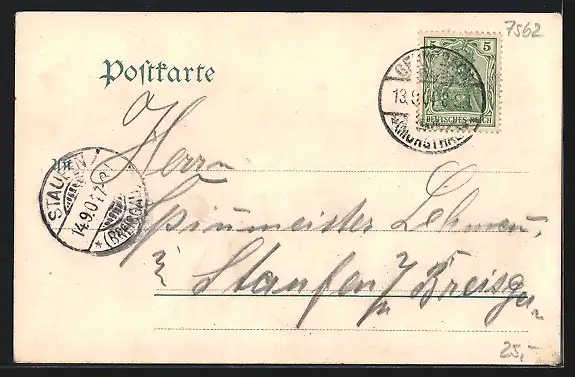 7562
Postkarte
5 5
13.9.0
DEUTSCHES REICH
(MURGTHAL)
An
Herrn
STAUFEN
14.9.0
(BREISGAU)
Spinnmeister Lehmann
Staufen
Breisgau
25,-